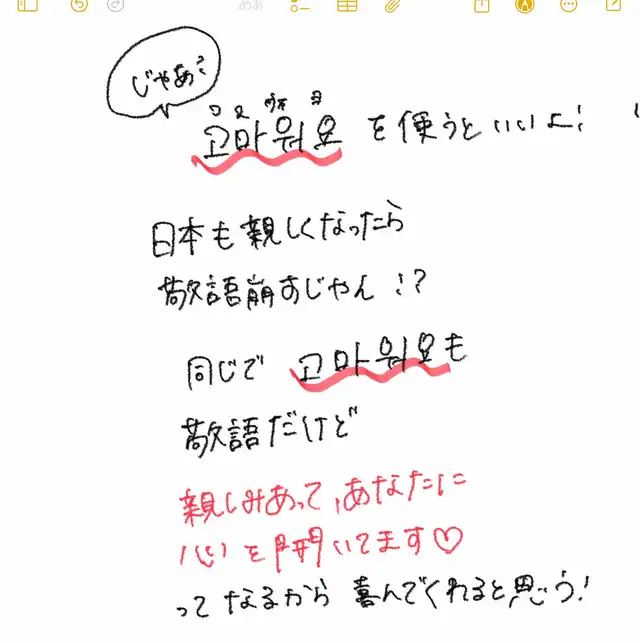 じゃあ?
コマウォヨ
고마워요 を使うといいよ!
日本も親しくなったら
敬語崩すじゃん!?
同じで 고마워요も
敬語だけど
親しみあって、あなたに
心を開いてます♡
ってなるから 喜んでくれると思う!